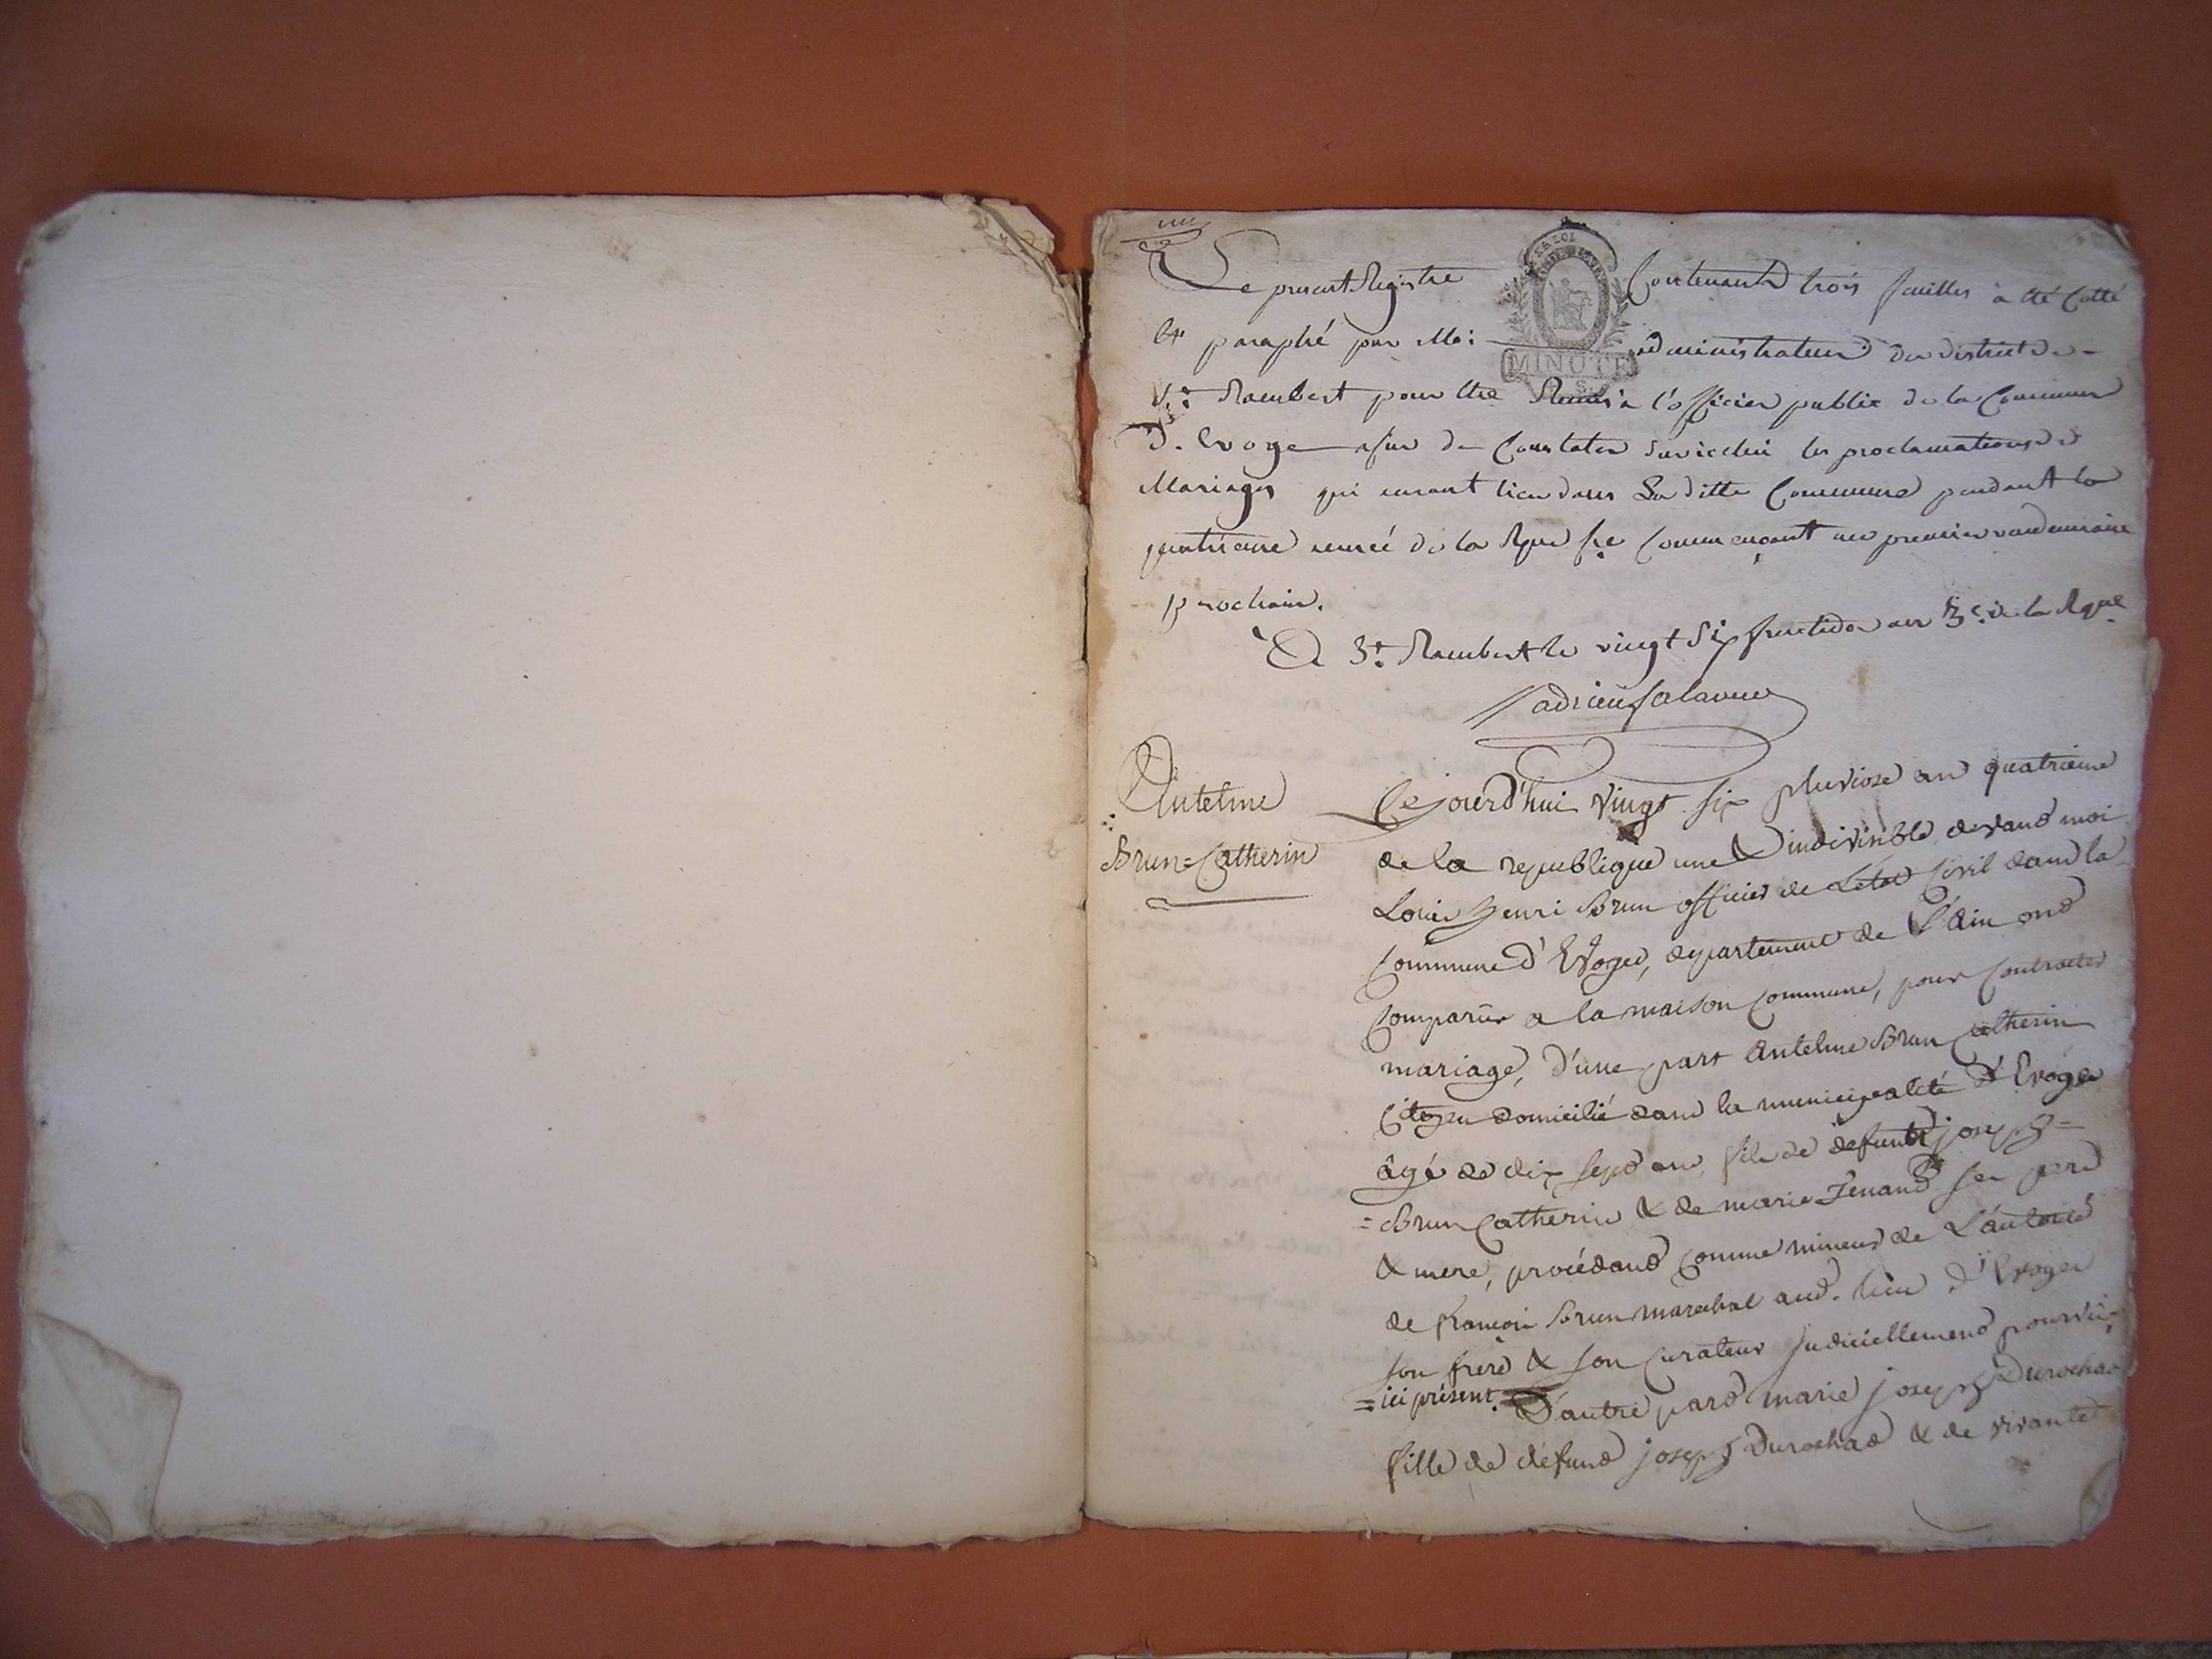 Le present Registre Contenant trois feuilles a été Cotté
et paraphé par Moi administrateur du district de
MINUTE
St. Rambert pour être Remis a l'officier public de la Commune
d'Evoge afin de Constater sur icelui les proclamations de
Mariages qui auront lieu dans La ditte Commune pendant la
quatrieme année de la Rque fse Commençant au premier vandemiaire
prochain.
A St. Rambert le vingt Six fructidor an 3e. de la Rque
Anthelme
Brun=Catherin
Cejourd'hui vingt six pluviose an quatrieme
de la republique une & indivisible devand moi
Louis henri Brun officier de Létat Civil dans la
Commune d'Evoges, departement de L'Ain ond
Comparus a la maison Commune, pour Contracter
mariage, d'une part Antelme Brun Catherin
Citoyen domicilié dans la municipalité d'Evoges
âgé de dix sept ans, fils de defunt joseph=
=Brun Catherin & de marie Jenand ses pere
& mere, procédand Comme mineur de L'autorité
de françois Brun marechal aud. lieu d'Evoges
son frere & son Curateur Judiciellement pourvu,
=ici présent. D'autre pard marie joseph Durochat
fille de défund joseph Durochad & de vivante